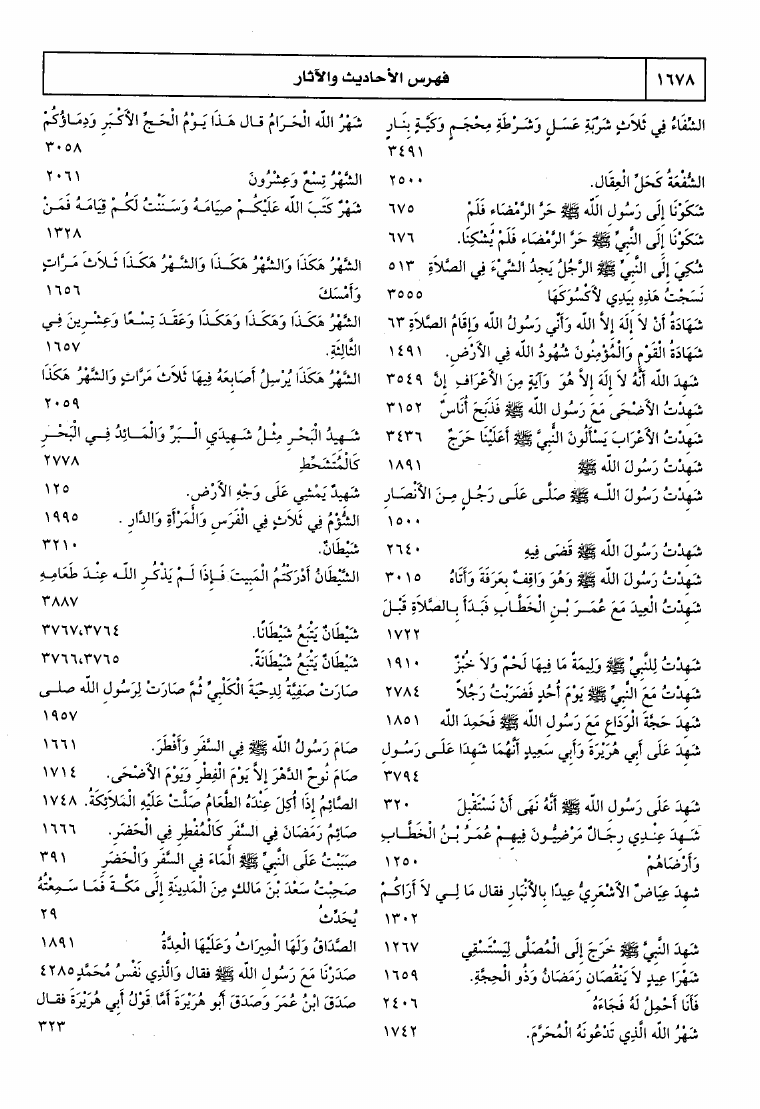 ١٦٧٨
فهرس الأحاديث والآثار
الشِّفَاءُ فِي ثَلَاثٍ شَرْبَةِ عَسَلٍ وَشَرْطَةِ مِحْجَمٍ وَكَيَّةٍ بِنَارٍ
٣٤٩١
الشُّفْعَةُ كَحَلِّ الْعِقَال. ٢٥٠٠
شَكَوْنَا إِلَى رَسُولِ اللَّه ﷺ حَرَّ الرَّمْضَاء فَلَمْ ٦٧٥
شَكَوْنَا إِلَى النَّبِيِّ ﷺ حَرَّ الرَّمْضَاء فَلَمْ يُشْكِنَا. ٦٧٦
شُكِيَ إِلَى النَّبِيِّ ﷺ الرَّجُلُ يَجِدُ الشَّيْءَ فِي الصَّلَاةِ ٥١٣
نَسَجْتُ هَذِهِ بِيَدِي لأَكْسُوَكَهَا ٣٥٥٥
شَهَادَةُ أَنْ لاَ إِلَهَ إِلاَّ اللَّه وَأَنِّي رَسُولُ اللَّه وَإِقَامُ الصَّلاَةِ ٦٣
شَهَادَةُ الْقَوْمِ وَالْمُؤْمِنُونَ شُهُودُ اللَّه فِي الأَرْضِ. ١٤٩١
شَهِدَ اللَّه أَنَّهُ لاَ إِلَهَ إِلاَّ هُوَ وَآيَةٍ مِنَ الأَعْرَافِ إِنَّ ٣٥٤٩
شَهِدْتُ الأَضْحَى مَعَ رَسُولِ اللَّه ﷺ فَذَبَحَ أُنَاسٌ ٣١٥٢
شَهِدْتُ الأَعْرَابَ يَسْأَلُونَ النَّبِيَّ ﷺ أَعَلَيْنَا حَرَجٌ ٣٤٣٦
شَهِدْتُ رَسُولَ اللَّه ﷺ ١٨٩١
شَهِدْتُ رَسُولَ اللَّه ﷺ صَلَّى عَلَى رَجُلٍ مِنَ الأَنْصَارِ
١٥٠٠
شَهِدْتُ رَسُولَ اللَّه ﷺ قَضَى فِيهِ ٢٦٤٠
شَهِدْتُ رَسُولَ اللَّه ﷺ وَهُوَ وَاقِفٌ بِعَرَفَةَ وَأَتَاهُ ٣٠١٥
شَهِدْتُ الْعِيدَ مَعَ عُمَرَ بْنِ الْخَطَّابِ فَبَدَأَ بِالصَّلاَةِ قَبْلَ
١٧٢٢
شَهِدْتُ لِلنَّبِيِّ ﷺ وَلِيمَةً مَا فِيهَا لَحْمٌ وَلاَ خُبْزٌ ١٩١٠
شَهِدْتُ مَعَ النَّبِيِّ ﷺ يَوْمَ أُحُدٍ فَضَرَبْتُ رَجُلاً ٢٧٨٤
شَهِدَ حَجَّةَ الْوَدَاعِ مَعَ رَسُولِ اللَّه ﷺ فَحَمِدَ اللَّه ١٨٥١
شَهِدَ عَلَى أَبِي هُرَيْرَةَ وَأَبِي سَعِيدٍ أَنَّهُمَا شَهِدَا عَلَى رَسُولِ
٣٧٩٤
شَهِدَ عَلَى رَسُولِ اللَّه ﷺ أَنَّهُ نَهَى أَنْ نَسْتَقْبِلَ ٣٢٠
شَهِدَ عِنْدِي رِجَالٌ مَرْضِيُّونَ فِيهِمْ عُمَرُ بْنُ الْخَطَّابِ
وَأَرْضَاهُمْ ١٢٥٠
شَهِدَ عِيَاضٌ الأَشْعَرِيُّ عِيدًا بِالأَنْبَارِ فقال مَا لِي لاَ أَرَاكُمْ
١٣٠٢
شَهِدَ النَّبِيَّ ﷺ خَرَجَ إِلَى الْمُصَلَّى لِيَسْتَسْقِي ١٢٦٧
شَهْرَا عِيدٍ لاَ يَنْقُصَانِ رَمَضَانُ وَذُو الْحِجَّةِ. ١٦٥٩
فَأَنَا أَحْمِلُ لَهُ فَجَاءَهُ ٢٤٠٦
شَهْرُ اللَّه الَّذِي تَدْعُونَهُ الْمُحَرَّمَ. ١٧٤٢
شَهْرُ اللَّه الْحَرَامُ قال هَذَا يَوْمُ الْحَجِّ الأَكْبَرِ وَدِمَاؤُكُمْ
٣٠٥٨
الشَّهْرُ تِسْعٌ وَعِشْرُونَ ٢٠٦١
شَهْرٌ كَتَبَ اللَّه عَلَيْكُمْ صِيَامَهُ وَسَنَنْتُ لَكُمْ قِيَامَهُ فَمَنْ
١٣٢٨
الشَّهْرُ هَكَذَا وَالشَّهْرُ هَكَذَا وَالشَّهْرُ هَكَذَا ثَلاَثَ مَرَّاتٍ
وَأَمْسَكَ ١٦٥٦
الشَّهْرُ هَكَذَا وَهَكَذَا وَهَكَذَا وَعَقَدَ تِسْعًا وَعِشْرِينَ فِي
الثَّالِثَةِ. ١٦٥٧
الشَّهْرُ هَكَذَا يُرْسِلُ أَصَابِعَهُ فِيهَا ثَلاَثَ مَرَّاتٍ وَالشَّهْرُ هَكَذَا
٢٠٥٩
شَهِيدُ الْبَحْرِ مِثْلُ شَهِيدَيِ الْبَرِّ وَالْمَائِدُ فِي الْبَحْرِ
كَالْمُتَشَحِّطِ ٢٧٧٨
شَهِيدٌ يَمْشِي عَلَى وَجْهِ الأَرْضِ. ١٢٥
الشُّؤْمُ فِي ثَلاَثٍ فِي الْفَرَسِ وَالْمَرْأَةِ وَالدَّارِ. ١٩٩٥
شَيْطَانٌ. ٣٢١٠
الشَّيْطَانُ أَدْرَكْتُمُ الْمَبِيتَ فَإِذَا لَمْ يَذْكُرِ اللَّه عِنْدَ طَعَامِهِ
٣٨٨٧
شَيْطَانٌ يَتْبَعُ شَيْطَانًا. ٣٧٦٧،٣٧٦٤
شَيْطَانٌ يَتْبَعُ شَيْطَانَةً. ٣٧٦٦،٣٧٦٥
صَارَتْ صَفِيَّةُ لِدِحْيَةَ الْكَلْبِيِّ ثُمَّ صَارَتْ لِرَسُولِ اللَّه صلى
١٩٥٧
صَامَ رَسُولُ اللَّه ﷺ فِي السَّفَرِ وَأَفْطَرَ. ١٦٦١
صَامَ نُوحٌ الدَّهْرَ إِلاَّ يَوْمَ الْفِطْرِ وَيَوْمَ الأَضْحَى. ١٧١٤
الصَّائِمُ إِذَا أُكِلَ عِنْدَهُ الطَّعَامُ صَلَّتْ عَلَيْهِ الْمَلاَئِكَةُ. ١٧٤٨
صَائِمُ رَمَضَانَ فِي السَّفَرِ كَالْمُفْطِرِ فِي الْحَضَرِ. ١٦٦٦
صَبَبْتُ عَلَى النَّبِيِّ ﷺ الْمَاءَ فِي السَّفَرِ وَالْحَضَرِ ٣٩١
صَحِبْتُ سَعْدَ بْنَ مَالِكٍ مِنَ الْمَدِينَةِ إِلَى مَكَّةَ فَمَا سَمِعْتُهُ
يُحَدِّثُ ٢٩
الصَّدَاقُ وَلَهَا الْمِيرَاثُ وَعَلَيْهَا الْعِدَّةُ ١٨٩١
صَدَرْنَا مَعَ رَسُولِ اللَّه ﷺ فقال وَالَّذِي نَفْسُ مُحَمَّدٍ ٤٢٨٥
صَدَقَ ابْنُ عُمَرَ وَصَدَقَ أَبُو هُرَيْرَةَ أَمَّا قَوْلُ أَبِي هُرَيْرَةَ فقال
٣٢٣